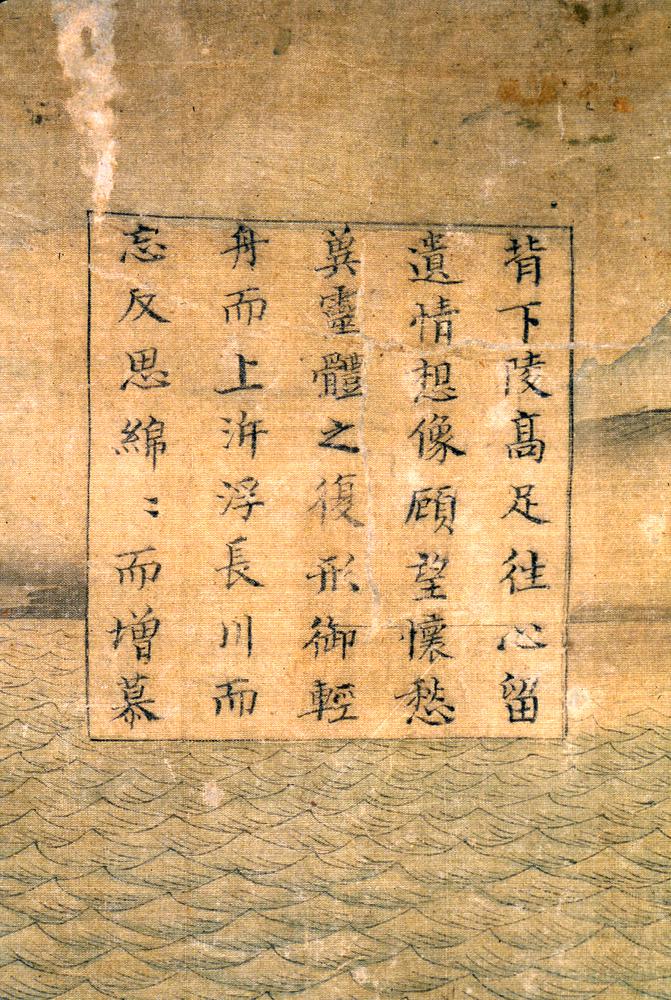 背下陵高足往心留
遺情想像顧望懷愁
兾靈體之復形御輕
舟而上泝浮長川而
忘反思綿〻而增慕